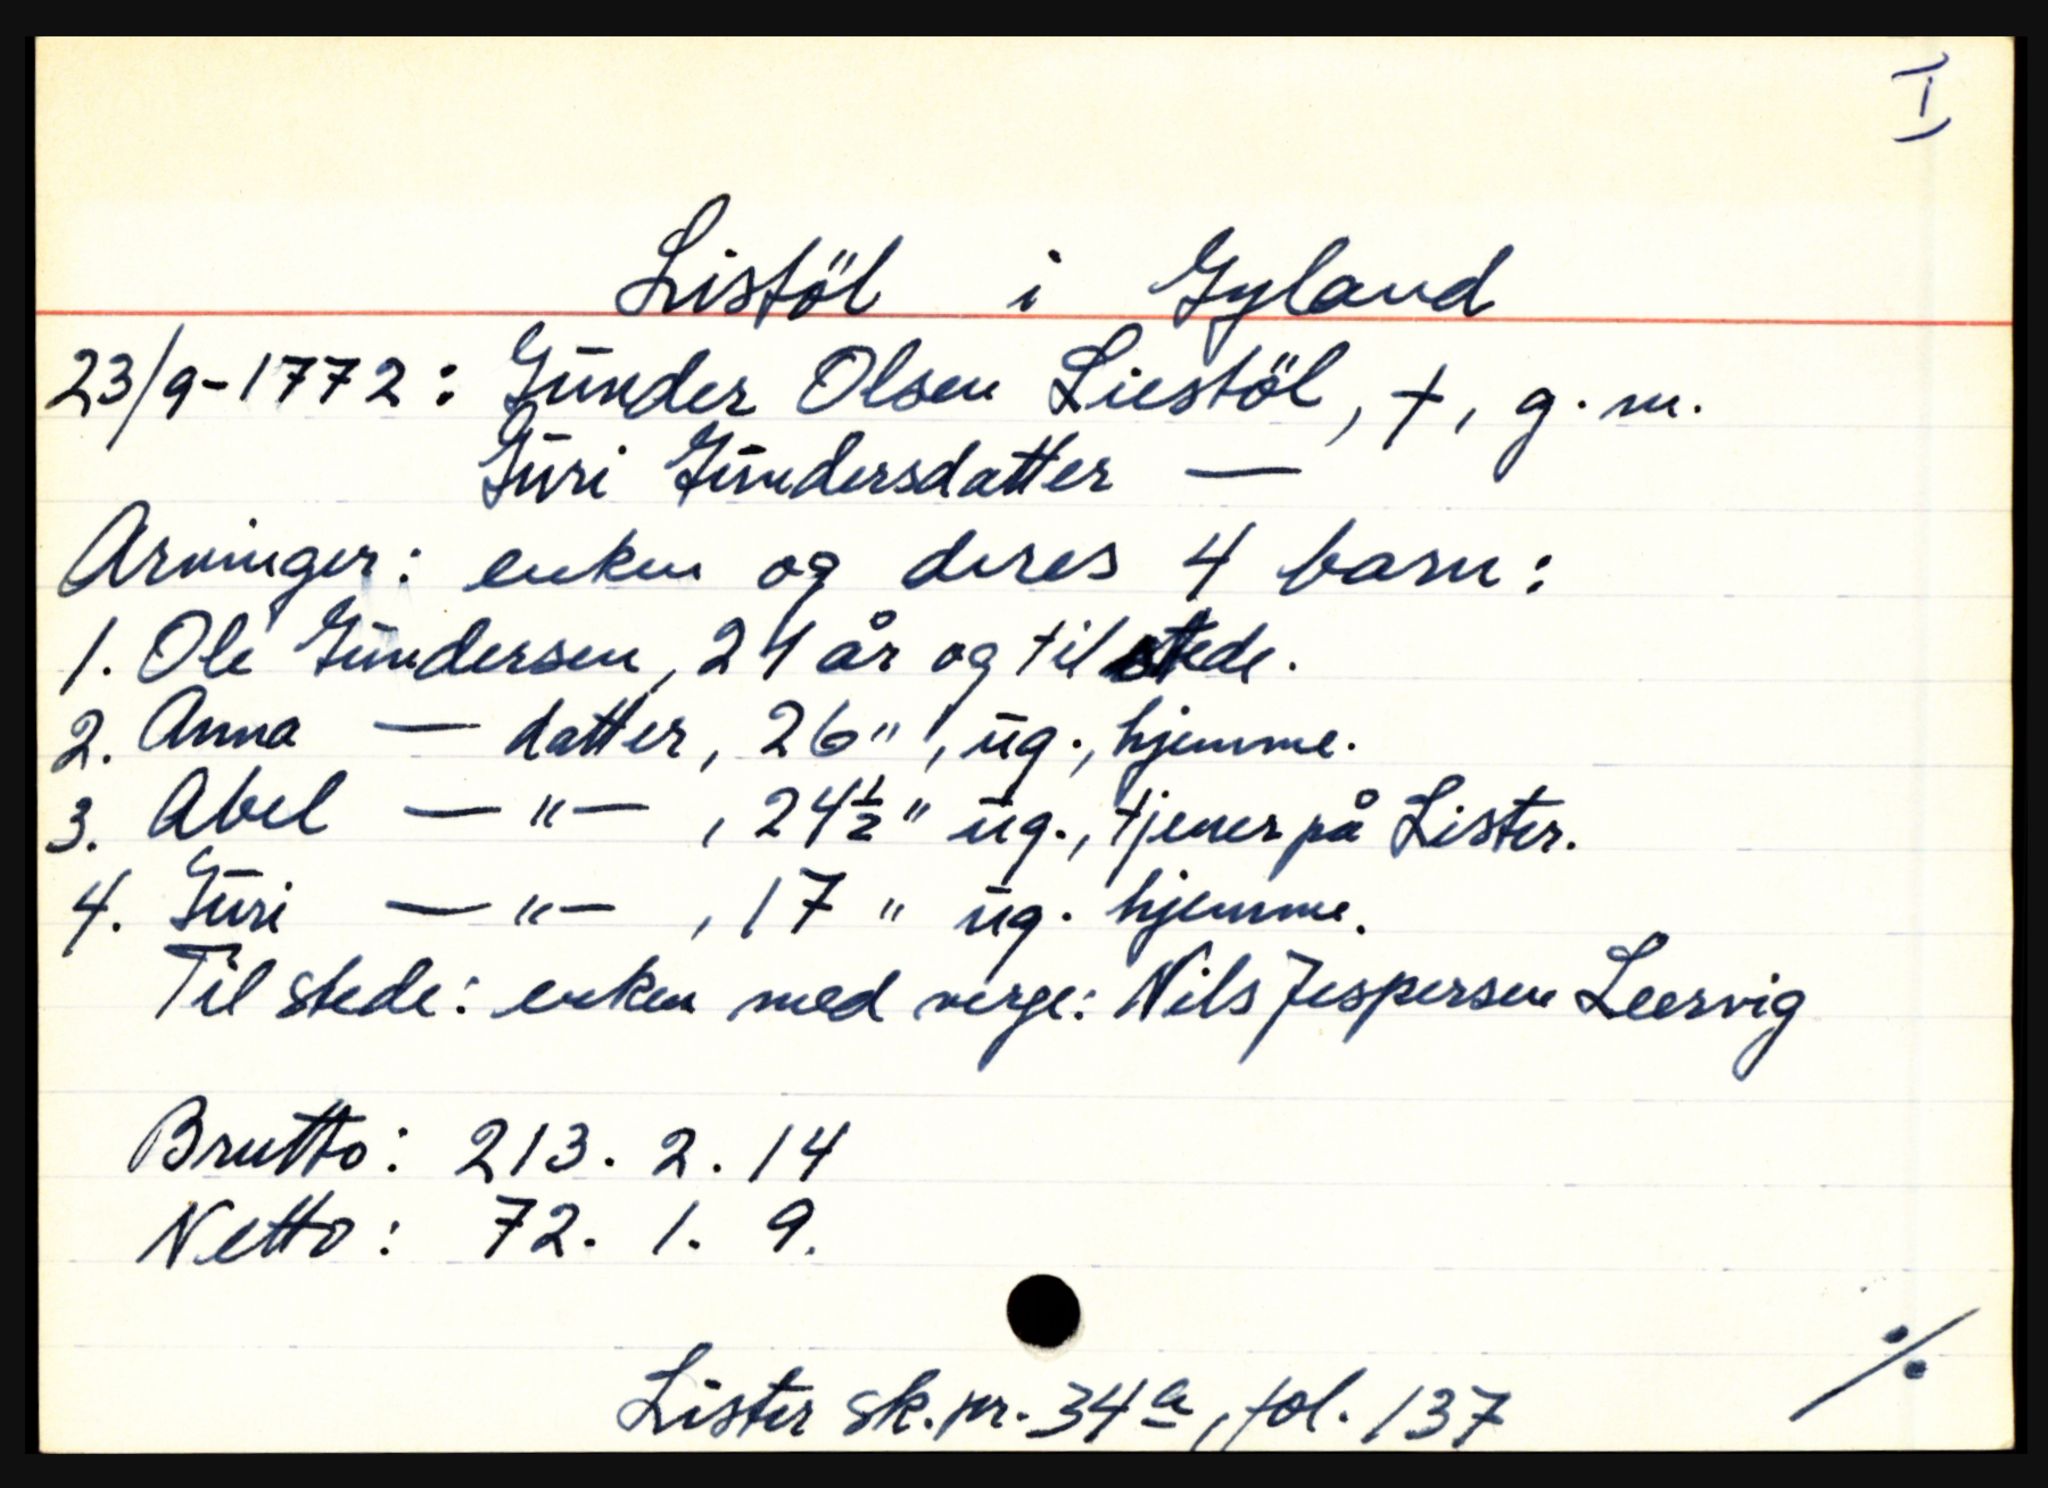 I
Listöl i Gyland
23/9-1772: Gunder Olsen Liestöl, †, g. m.
Guri Gundersdatter —
Arvinger: enken og deres 4 barn:
1. Ole Gundersen, 24 år og til stede.
2. Anna — datter, 26 ", ug., hjemme.
3. Abel — " — , 24½ " ug., tjener på Lister.
4. Guri — " — , 17 " ug. hjemme.
Til stede: enken med verge: Nils Jespersen Leervig
Brutto: 213. 2. 14
Netto: 72. 1. 9.
Lister sk. pr. 34a, fol. 137
./.